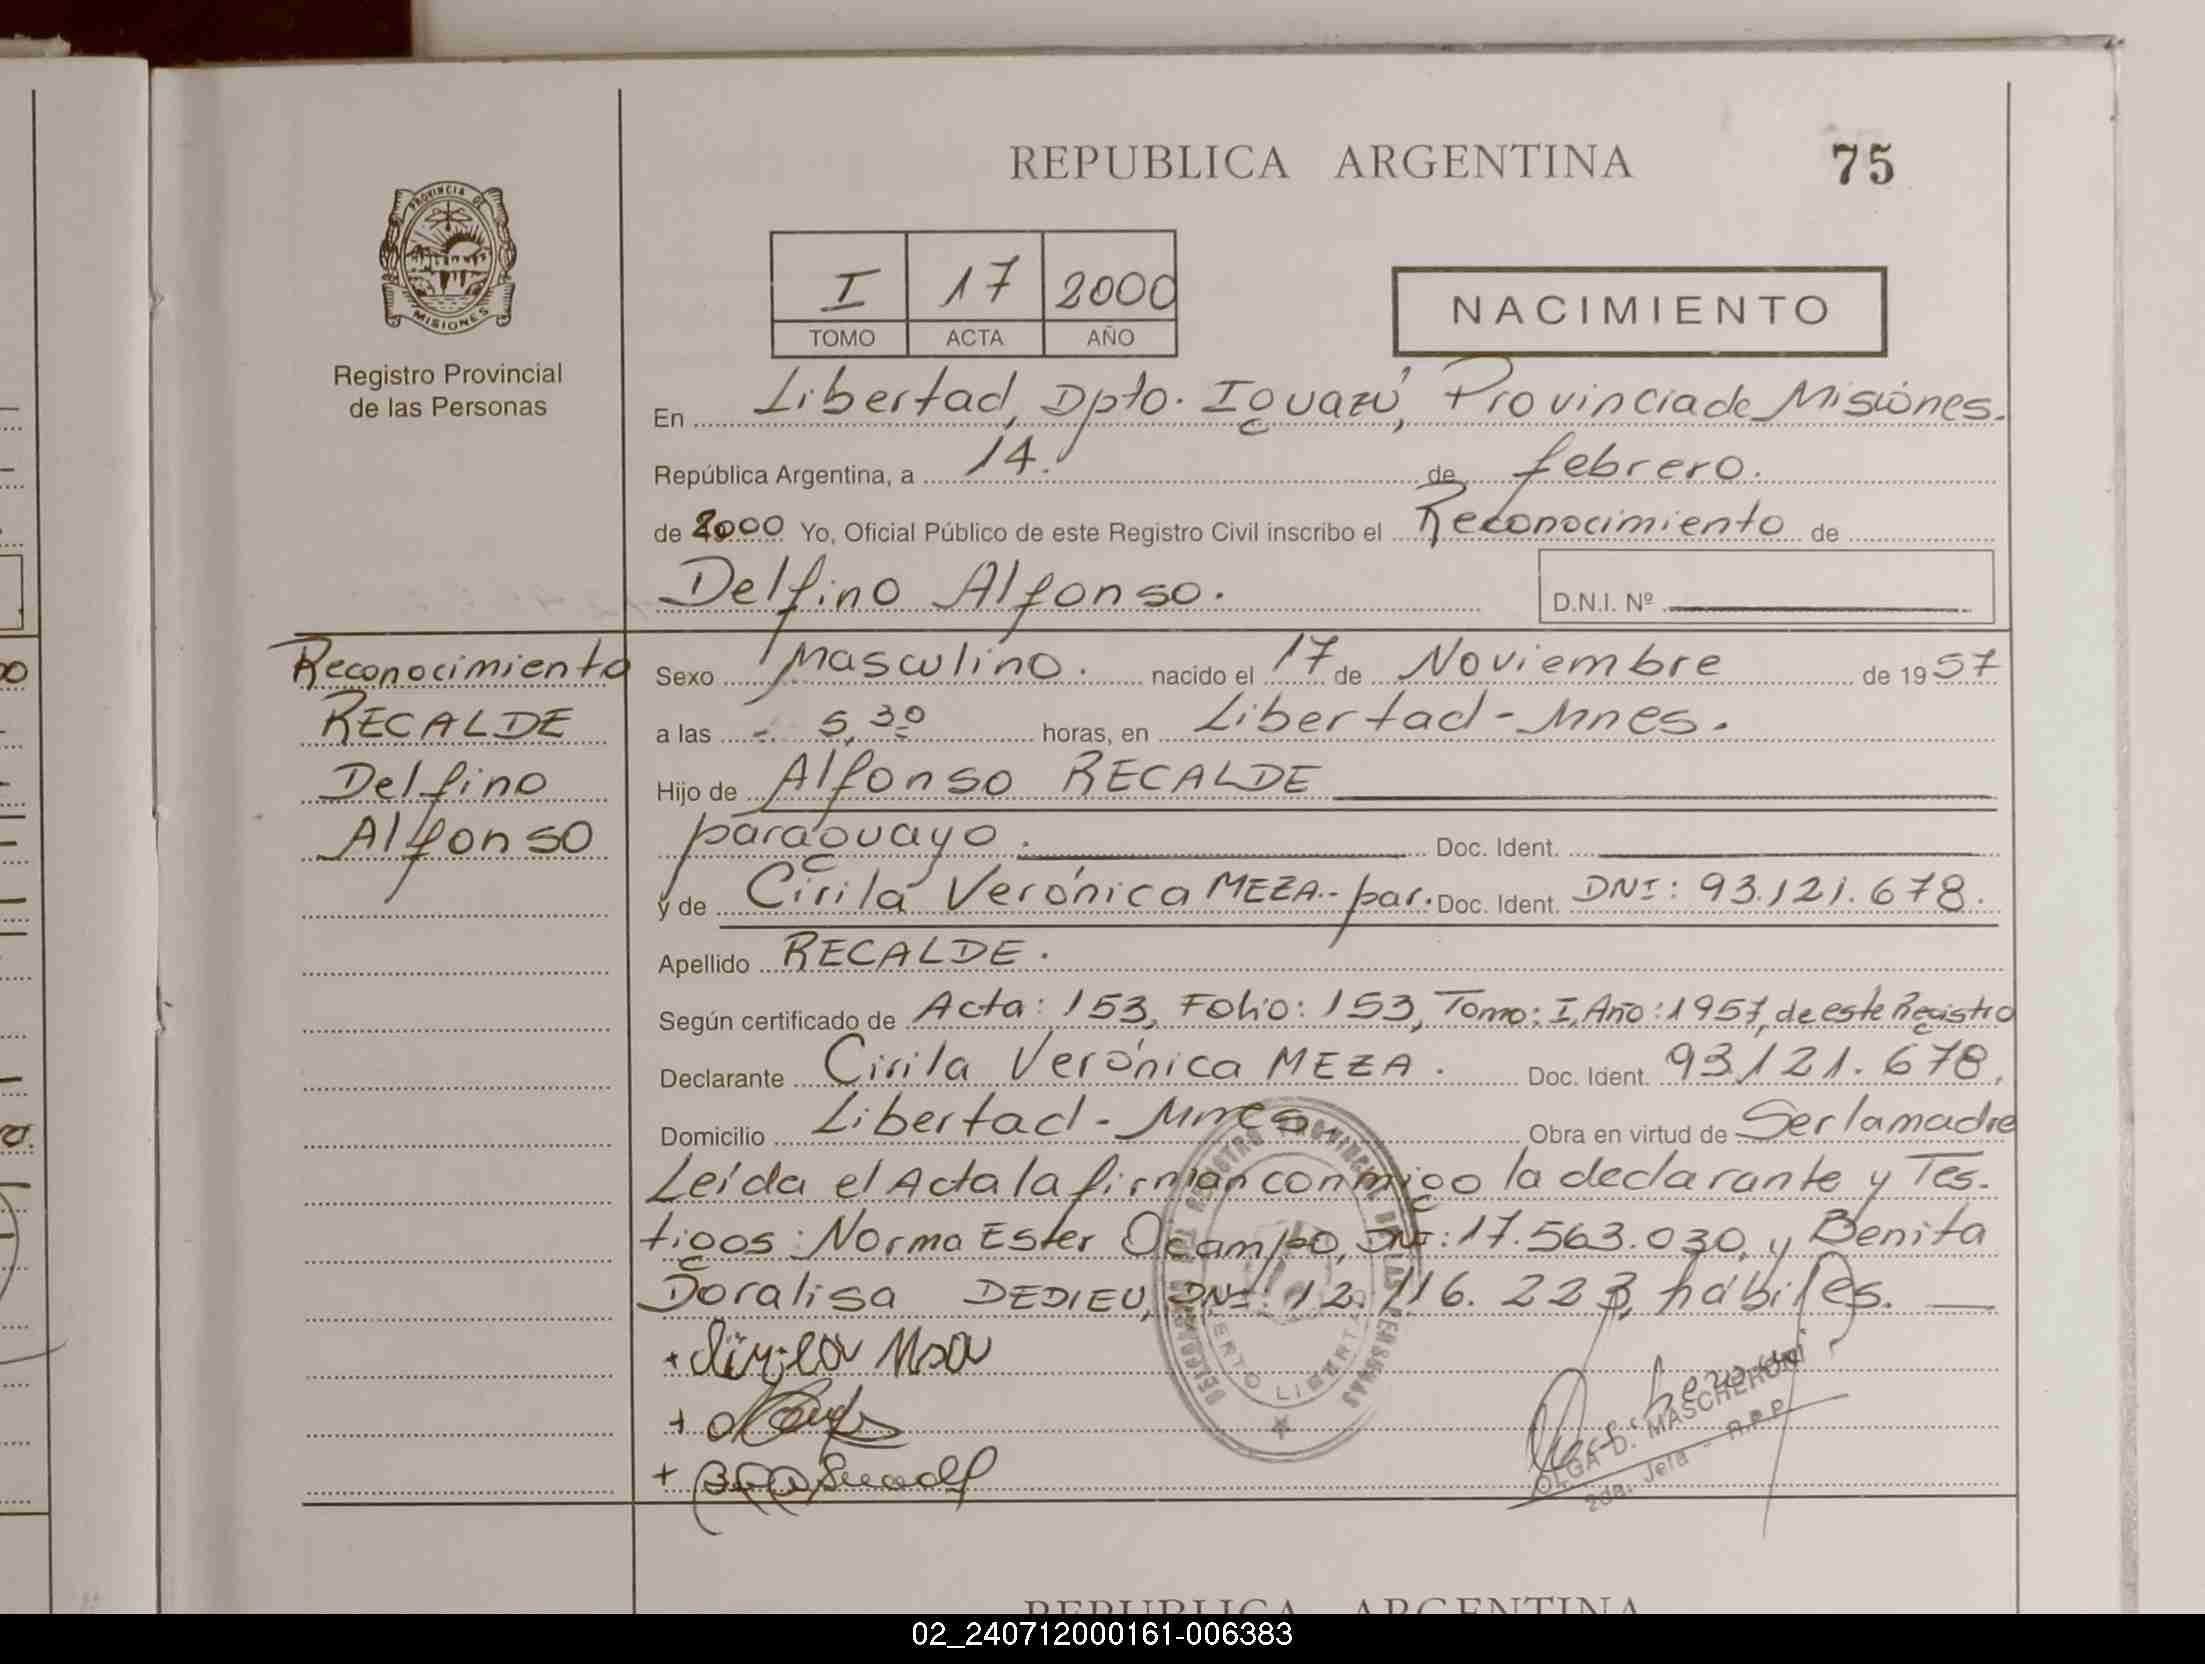 REPUBLICA ARGENTINA
75
PROVINCIA DE
MISIONES
Registro Provincial
de las Personas
I 17 2000
TOMO ACTA AÑO
NACIMIENTO
En Libertad, Dpto. Iguazú, Provincia de Misiones.
República Argentina, a 14. de febrero.
de 2000 Yo, Oficial Público de este Registro Civil inscribo el Reconocimiento de
Delfino Alfonso.
D.N.I. Nº
Reconocimiento
RECALDE
Delfino
Alfonso
Sexo Masculino. nacido el 17 de Noviembre de 1957
a las 5,30 horas, en Libertad - Mnes.
Hijo de Alfonso RECALDE
paraguayo. Doc. Ident.
y de Cirila Verónica MEZA.- par. Doc. Ident. DNI: 93.121.678.
Apellido RECALDE.
Según certificado de Acta: 153, Folio: 153, Tomo: I, Año: 1957, de este Registro
Declarante Cirila Verónica MEZA. Doc. Ident. 93.121.678.
Domicilio Libertad - Mnes. Obra en virtud de Ser la madre
Leída el Acta la firman conmigo la declarante y Tes.
tigos: Norma Ester Ocampo, DNI: 17.563.030, y Benita
Doralisa DEDIEU, DNI: 12.116.223, hábiles.
OLGA D. MASCHERONI
2da. Jefa - R.P.P.
REPUBLICA ARGENTINA
02_240712000161-006383